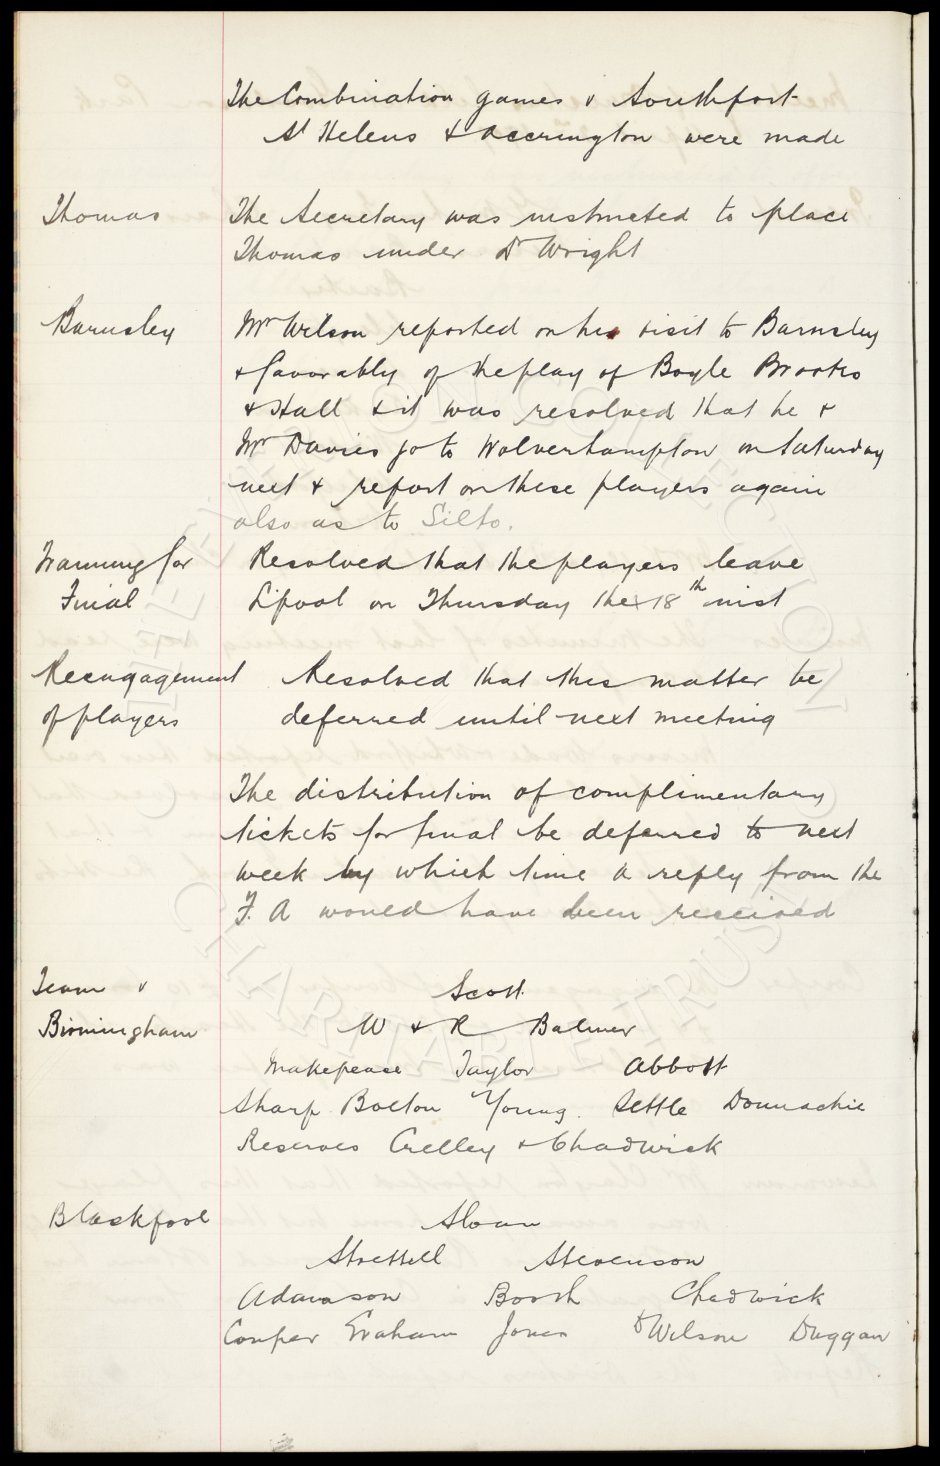 The Combination games v Southport
St Helens & Accrington were made
Thomas The Secretary was instructed to place
Thomas under Dr Wright
Barnsley Mr Wilson reported on his visit to Barnsley
& favorably of the play of Boyle Brooks
& Hall & it was resolved that he &
Mr Davies go to Wolverhampton on Saturday
next & report on these players again
also as to Silto.
Training for Resolved that the players leave
Final L'pool on Thursday the 18th inst
Reengagement Resolved that this matter be
of players deferred until next meeting
The distribution of complimentary
tickets for final be deferred to next
week by which time a reply from the
F. A would have been received
Team v Scott.
Birmingham W & R Balmer
Makepeace Taylor Abbott
Sharp Bolton Young. Settle Donnachie
Reserves Crelley & Chadwick
Blackpool Sloan
Strettell Stevenson
Adamson Booth Chadwick
Couper Graham Jones D Wilson Duggan
THE EVERTON COLLECTION
CHARITABLE TRUST